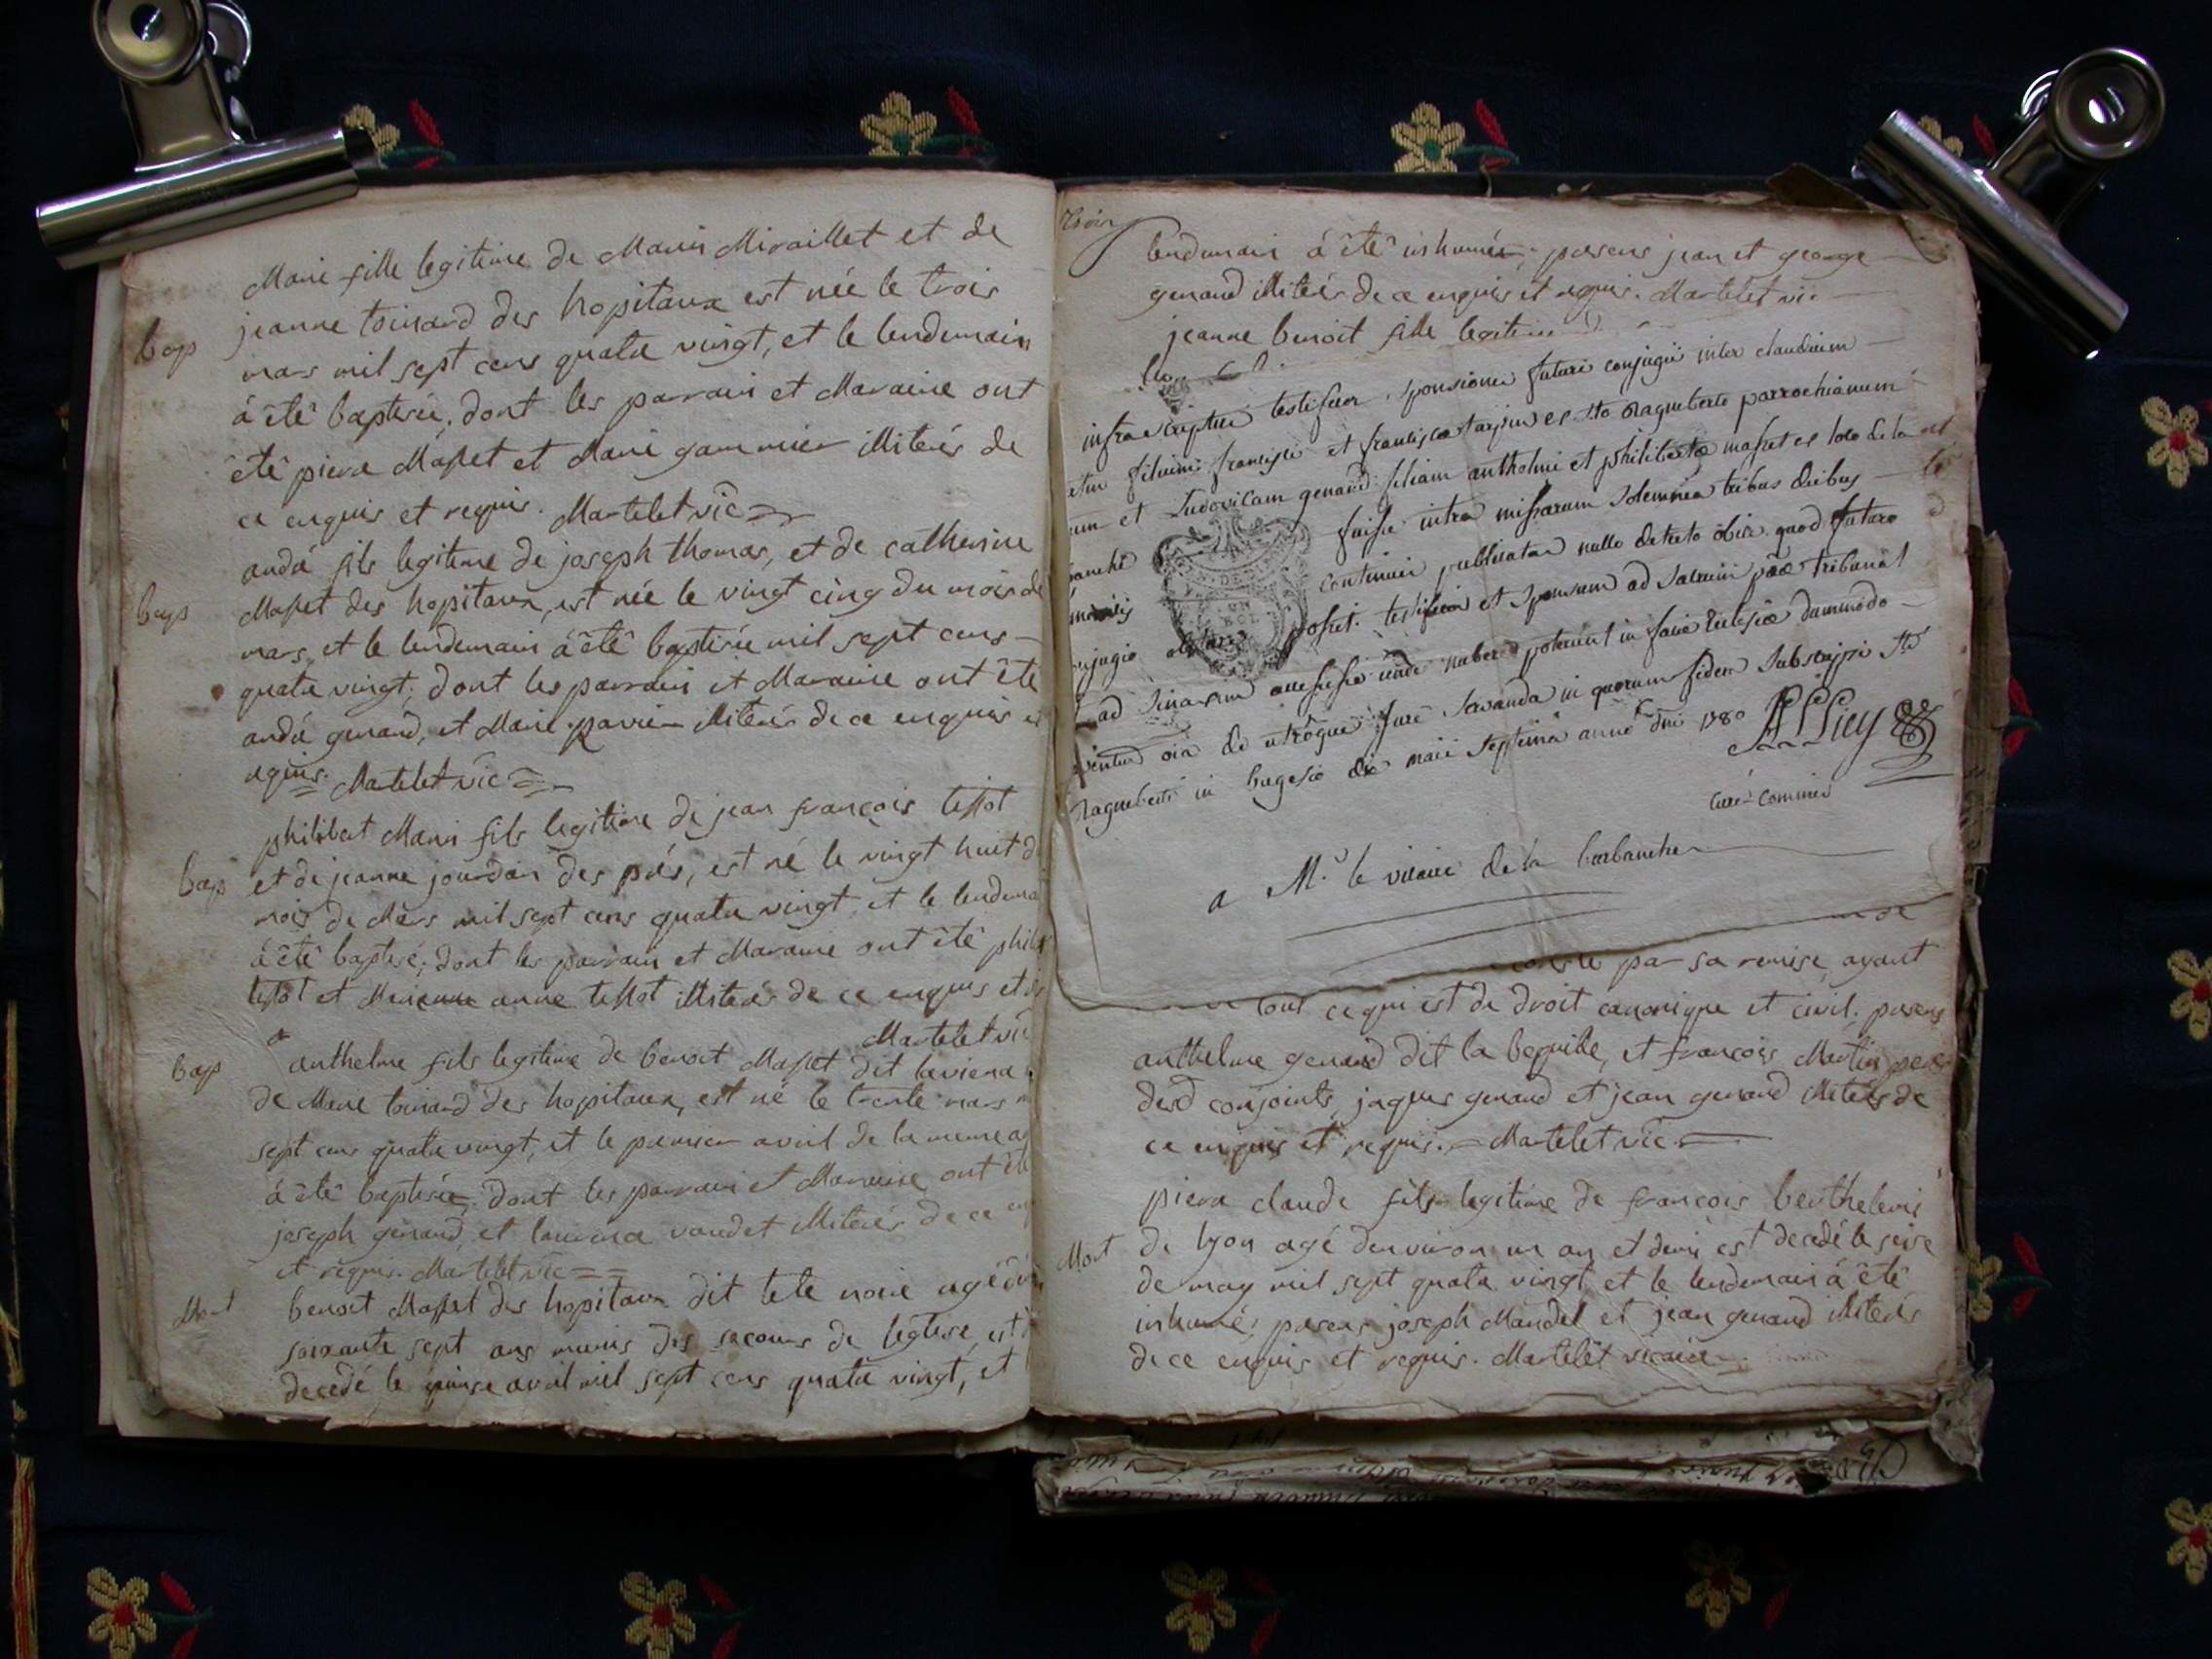 Marie fille legitime de Marin Miraillet et de
bap jeanne toinard des hopitaux est née le trois
mars mil sept cens quatre vingt, et le lendemain
à été baptisée, dont les parrain et Maraine ont
été piere Masset et Marie gammier illiterés de
ce enquis et requis. Martelet vic
andré fils legitime de joseph thomas, et de catherine
bap Masset des hopitaux, est née le vingt cinq du mois de
mars, et le lendemain à été baptisée mil sept cens
quatre vingt; dont les parrain et Maraine ont été
andré genand, et Marie parrier illiterés de ce enquis et
requis. Martelet vic
philibert Marin fils legitime de jean françois tissot
bap et de jeanne jourdan des prés, est né le vingt huit d
mois de Mars mil sept cens quatre vingt, et le lendema
à été baptisé; dont les parrain et Maraine ont été philib
tissot et anne tissot illiterés de ce enquis et
Martelet vic
bap anthelme fils legitime de benoit Masset dit laviena
de Marie toinard des hopitaux, est né le trente mars
sept cens quatre vingt, et le premier avril de la meme a
à été baptisée, dont les parrain et Maraine ont été
joseph genand, et vaudet illiterés de ce en
et requis. Martelet vic
Mort benoit Masset des hopitaux dit tete noire agé d
soixante sept ans munis des secours de l'eglise, est
decedé le quinse avril mil sept cens quatre vingt, et
lendemain à été inhumée; presens jean et george
genand illiterés de ce enquis et requis. Martelet vic
jeanne benoit fille legitime
infrascriptus testificor sponsiones futuri conjugii inter claudium
filium francisci et francisca ex sto Ragneberto parrochianum
et Ludovicam genand filiam anthelmi et philiberta masset ex loco de la
fuisse intra missarum solemnia tribus diebus
continuis publicatas nullo detecto obice quod futuro
posset. testificor et sponsum ad sacrum pœ tribunal
ad sinaxim accessisse unde nubere poterunt in facie Ecclesiæ dummodo
oia de utroque jure servanda in quorum fidem subscripsi Sto
Ragneberti in bugesio die maii septima anno dni 1780
curé commis
a Mr. le vicaire de la burbanche
par sa remise, ayant
tout ce qui est de droit canonique et civil. presens
anthelme genand dit la bequille, et françois Martin peres
desd conjoints, jaques genand et jean genand illiterés de
ce enquis et requis. Martelet vic
piere claude fils legitime de françois berthelemi
Mort de lyon agé d'environ un an et demi est decedé le seise
de may mil sept quatre vingt et le lendemain à été
inhumé; presens joseph Mandel et jean genand illiterés
de ce enquis et requis. Martelet vicaire